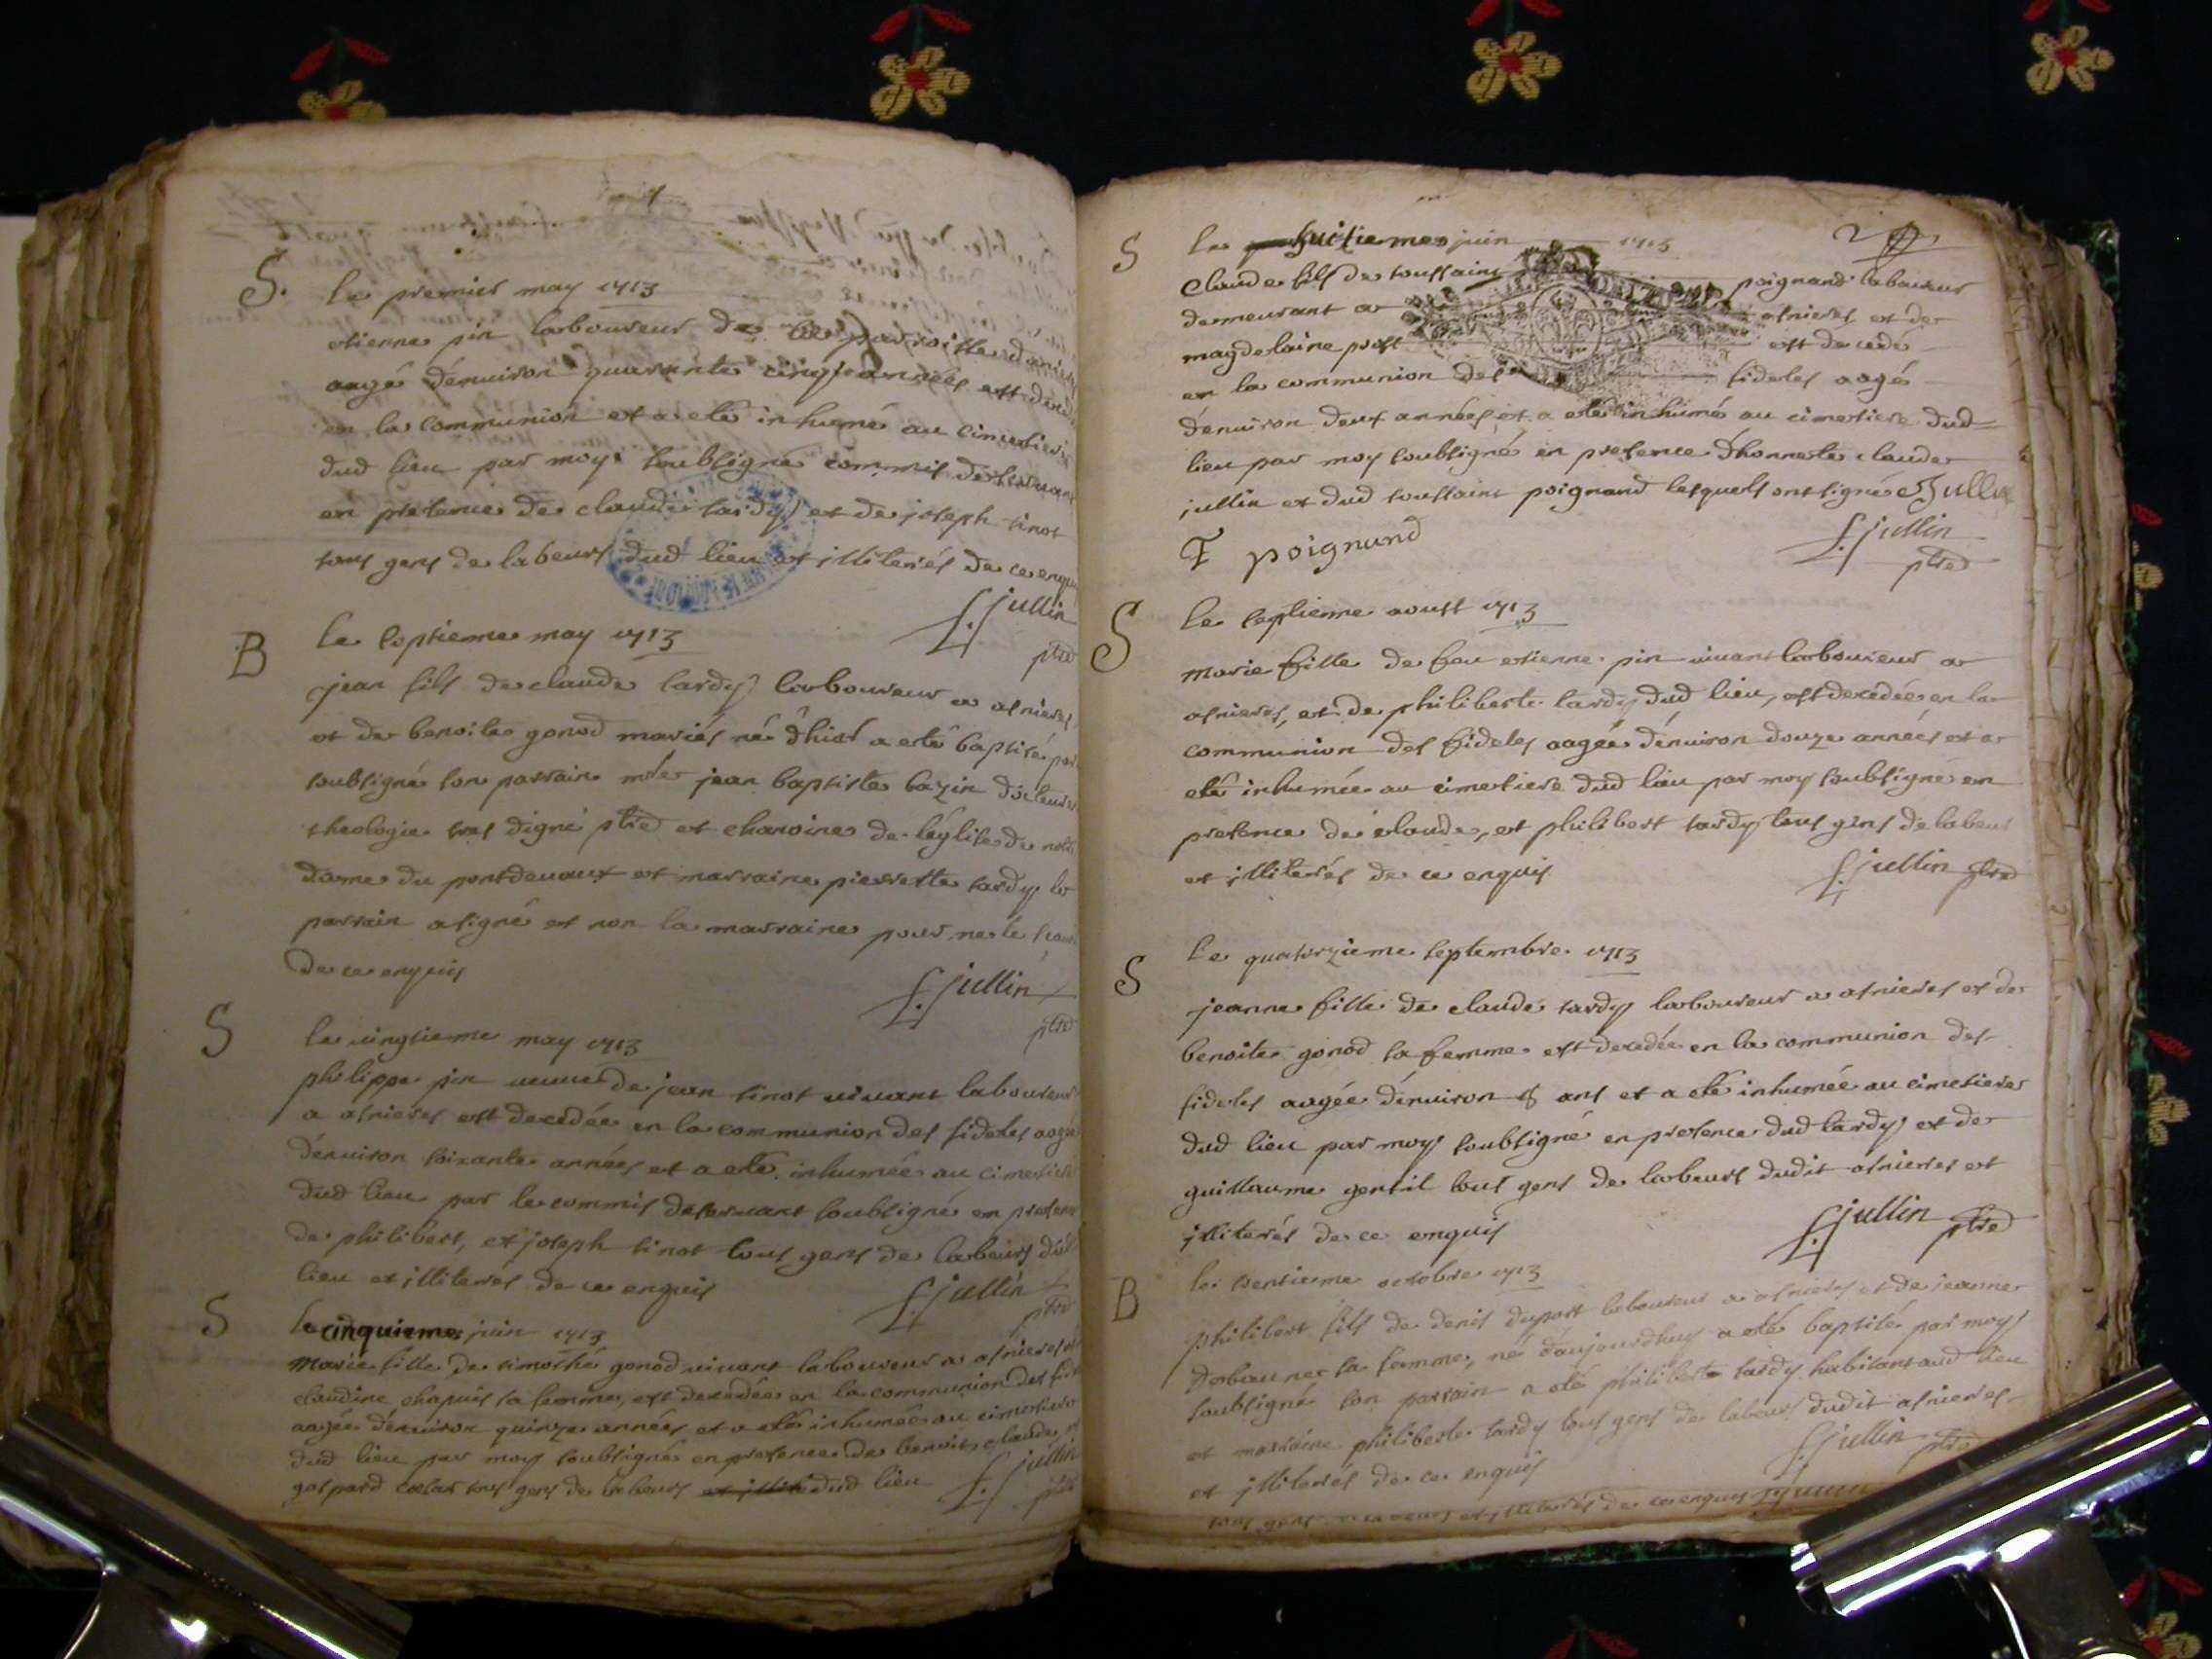 S. Le premier may 1713
etienne pin laboureur de la parroisse d'asnieres
aagé d'enuiron quarante cinq années est decedé
en la communion et a eté inhumé au cimetiere
dud lieu par moy soubsigné commis deseruant
en presence de claude tardy et de joseph tinot
tous gens de labeurs dud lieu et illiterés de ce enquis
f. jullin
ptre
B Le septieme may 1713
jean fils de claude tardy laboureur a asnieres
et de benoite gonod mariés né d'hier a eté baptisé par
soubsigné son parrain jean baptiste bazin docteur
theologie tres digne ptre et chanoine de l'église de notre
dame du pontdevaux et marraine pierrette tardy le
parrain a signé et non la marraine pour ne le scauoir
de ce enquis
f. jullin
ptre
S le uingtieme may 1713
philippe pin ueuue de jean tinot uiuant laboureur
a asnieres est decedée en la communion des fideles aagée
d'enuiron soixante années et a eté inhumée au cimetiere
dud lieu par le commis deseruant soubsigné en presence
de philibert, et joseph tinot tous gens de labeurs dud
lieu et illiterés de ce enquis
f. jullin
ptre
S Le cinquieme juin 1713
marie fille de timothé gonod uiuant laboureur a asnieres et
claudine chapuis sa femme, est decedée en la communion des fideles
aagée d'enuiron quinze années et a eté inhumée au cimetiere
dud lieu par moy soubsigné en presence de benoit, claude,
gaspard tous gens de labeurs dud lieu
f. jullin
ptre
S Le huitieme juin 1713
claude fils de toussaint poignand laboureur
demeurant a asnieres et de
magdelaine prost est decede
en la communion des fideles aagé
d'enuiron deux années et a eté inhumé au cimetiere dud
lieu par moy soubsigné en presence d'honneste claude
jullin et dud toussaint poignand lesquels ont signé C Jullin
T poignand
f. jullin
ptre
S Le septieme aoust 1713
marie fille de feu etienne pin uiuant laboureur a
asnieres, et de philiberte tardy dud lieu, est decedée en la
communion des fideles aagée d'enuiron douze années et a
eté inhumée au cimetiere dud lieu par moy soubsigné en
presence de claude, et philibert tardy tous gens de labeur
et illiterés de ce enquis
f. jullin ptre
S Le quatorzieme septembre 1713
jeanne fille de claude tardy laboureur a asnieres et de
benoite gonod sa femme est decedée en la communion des
fideles aagée d'enuiron ans et a eté inhumée au cimetiere
dud lieu par moy soubsigné en presence dud tardy et de
guillaume gentil tous gens de labeurs dudit asnieres et
illiterés de ce enquis
f. jullin ptre
B le trentieme octobre 1713
philibert fils de denis duport laboureur a asnieres et de jeanne
sa femme, né d'aujourdhuy a eté baptisé par moy
soubsigné son parrain a eté philibert tardy habitant aud lieu
et marraine philiberte tardy tous gens de labeurs dudit asnieres
et illiterés de ce enquis
f. jullin ptre
tous gens de labeurs et illiterés de ce enquis f. jullin